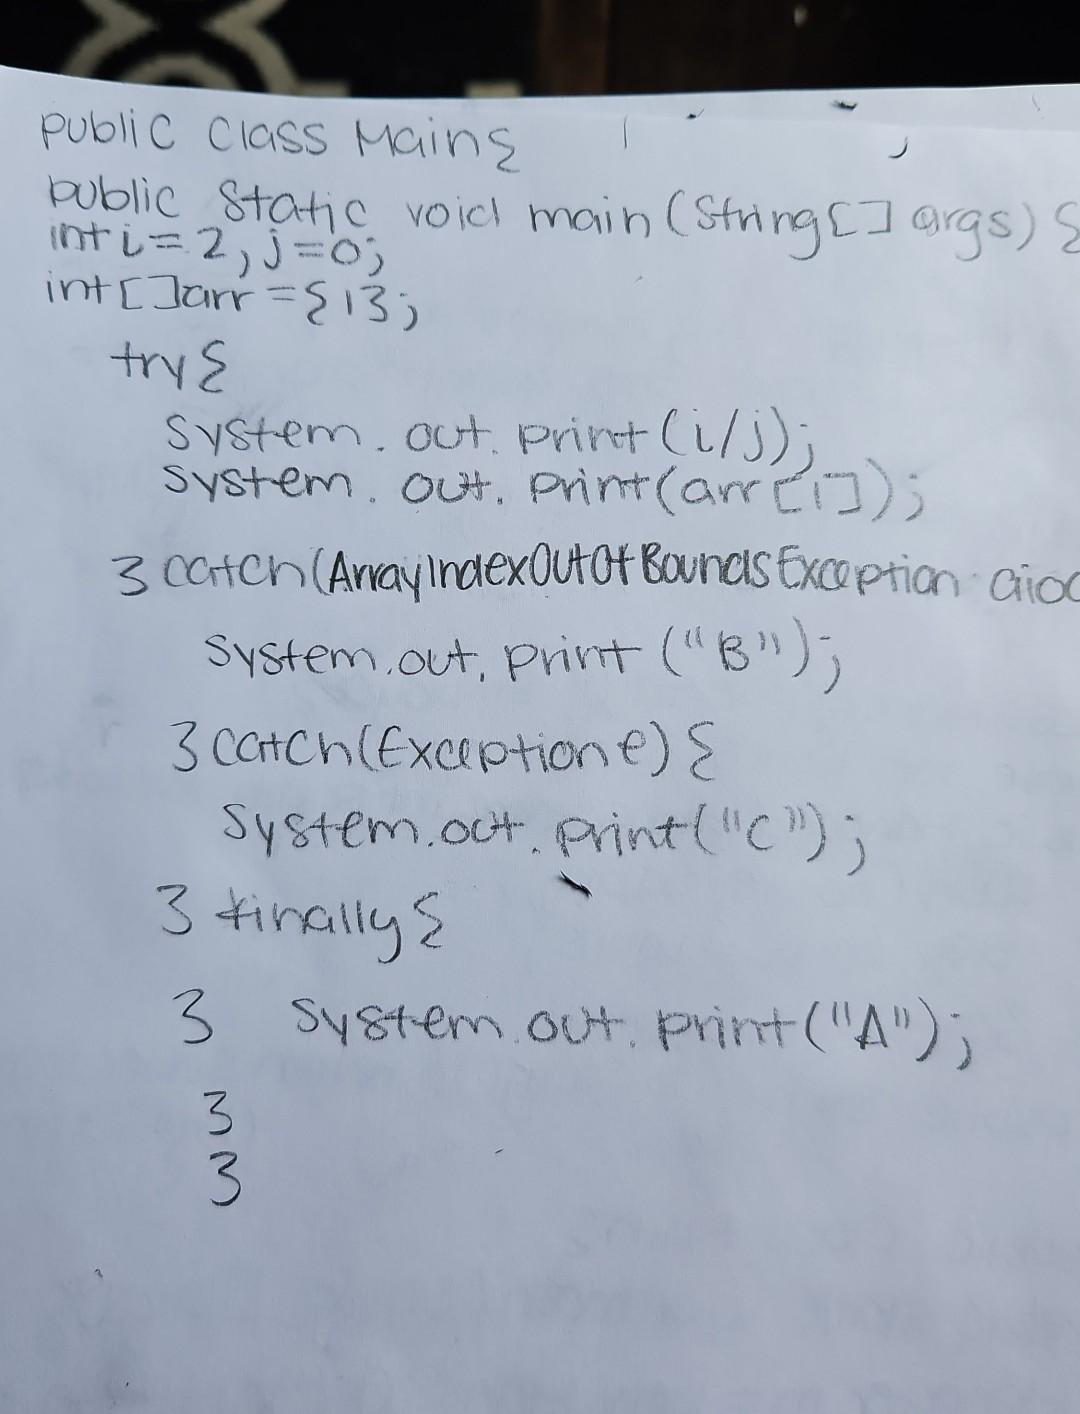 public class Main{
public static void main(String[] args) {
int i = 2, j=0;
int[]arr = {1};
try{
System.out.print(i/j);
System.out.print(arr[i]);
} catch(ArrayIndexOutOfBoundsException aioo
System.out.print("B");
} catch(Exception e) {
System.out.print("C");
} finally{
} System.out.print("A");
}
}